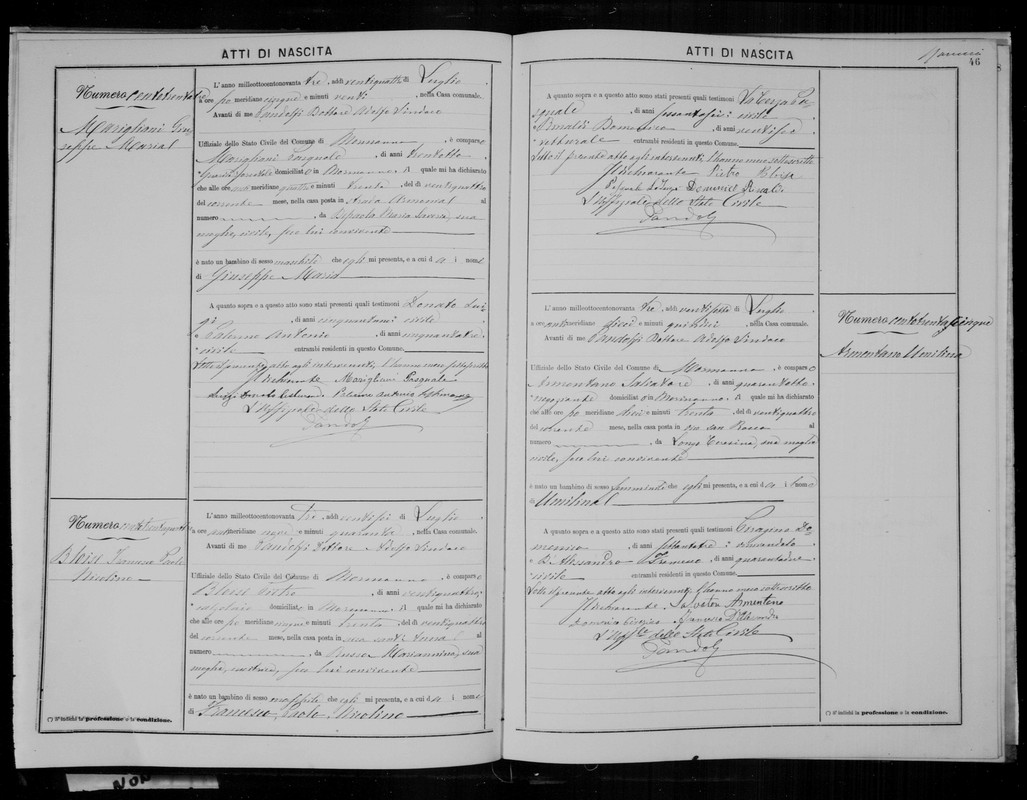 ATTI DI NASCITA
Numero centotrentatre
Marigliani Giu-
seppe Maria
L'anno milleottocentonovanta tre, addì ventiquattro di Luglio
a ore pomeridiane cinque e minuti venti, nella Casa comunale.
Avanti di me Pandolfi Dottore Adolfo Sindaco
Ufficiale dello Stato Civile del Comune di Mormanno, è comparso
Marigliani Pasquale, di anni trentotto
Guardia forestale domiciliato in Mormanno il quale mi ha dichiarato
che alle ore meridiane quattro e minuti trenta, del dì ventiquattro
del corrente mese, nella casa posta in al
numero, da Maria sua
moglie, civile, seco lui convivente
è nato un bambino di sesso maschile che egli mi presenta, e a cui dà i nomi
di Giuseppe Maria
A quanto sopra e a questo atto sono stati presenti quali testimoni Donato Lui-
gi, di anni cinquantuno civile
Antonio, di anni cinquantatre
civile entrambi residenti in questo Comune.
Letto il presente atto agli intervenuti, l'hanno meco sottoscritto
Il dichiarante Marigliani Pasquale
L'Uffiziale dello Stato Civile
Pandolfi
Numero
Bloise Francesco Paolo
Nicolino
L'anno milleottocentonovanta tre, addì ventisei di Luglio
a ore antimeridiane nove e minuti quaranta, nella Casa comunale.
Avanti di me Pandolfi Dottore Adolfo Sindaco
Ufficiale dello Stato Civile del Comune di Mormanno, è comparso
Bloise Pietro, di anni ventiquattro,
calzolaio domiciliato in Mormanno il quale mi ha dichiarato
che alle ore pomeridiane nove e minuti trenta, del dì ventiquattro
del corrente mese, nella casa posta in via Sant'Anna al
numero, da Mariannina, sua
moglie, seco lui convivente
è nato un bambino di sesso maschile che egli mi presenta, e a cui dà i nomi
di Francesco, Paolo, Nicolino
(*) S'indichi la professione o la condizione.
ATTI DI NASCITA
46
A quanto sopra e a questo atto sono stati presenti quali testimoni Pa-
squale, di anni civile
Rinaldi Domenico, di anni ventisei
vetturale entrambi residenti in questo Comune.
Letto il presente atto agli intervenuti l'hanno meco sottoscritto
Il dichiarante Pietro Bloise
Domenico Rinaldi
L'Uffiziale dello Stato Civile
Pandolfi
L'anno milleottocentonovanta tre, addì ventisette di Luglio
a ore antimeridiane dieci e minuti quindici, nella Casa comunale.
Avanti di me Pandolfi Dottore Adolfo Sindaco
Ufficiale dello Stato Civile del Comune di Mormanno, è comparso
Armentano Salvatore, di anni quarantotto
negoziante domiciliato in Mormanno il quale mi ha dichiarato
che alle ore pomeridiane tre e minuti trenta, del dì ventiquattro
del corrente mese, nella casa posta in via San Rocco al
numero, da Longo Teresina, sua moglie
civile, seco lui convivente
è nato un bambino di sesso femminile che egli mi presenta, e a cui dà il nome
di Umilina
A quanto sopra e a questo atto sono stati presenti quali testimoni Do-
menico, di anni settantatre
D'Alessandro, di anni quarantadue
civile entrambi residenti in questo Comune.
Letto il presente atto agli intervenuti l'hanno meco sottoscritto
Il dichiarante Salvatore Armentano
L'Uff.le dello Stato Civile
Pandolfi
Numero centotrentacinque
Armentano Umilina
(*) S'indichi la professione o la condizione.
NON